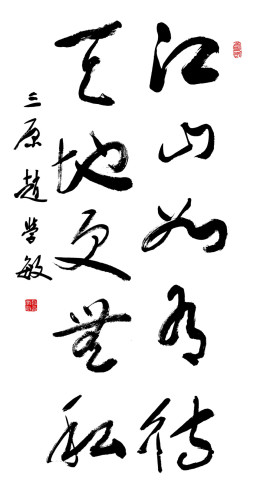 江山如有待
天地更無私
三原趙學敏